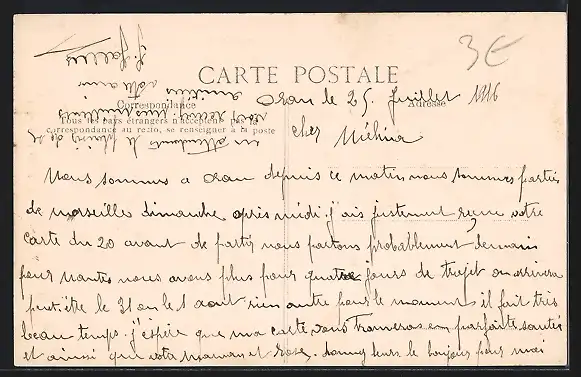 3€
CARTE POSTALE
Correspondance
Adresse
Tous les pays étrangers n'acceptent pas la
correspondance au recto, se renseigner à la poste
Oran le 25 Juillet 1916
cher
Nous sommes a oran depuis ce matin nous sommes partis
de marseille dimanche après midi. j'ais justement reçue votre
carte du 20 avant de partir nous partons probablement demain
pour nantes nous avons plus pour quatre jours de trajet on arrivera
peut-être le 31 ou le 1 aout rien autre pour le moment il fait tris
beau temps. j'espère que ma carte vous trouveras en parfaite santée
et ainsi que votre maman et rose. donnez leurs le bonjour pour moi
en attendant le plaisir de
vous
amitiés
votre ami